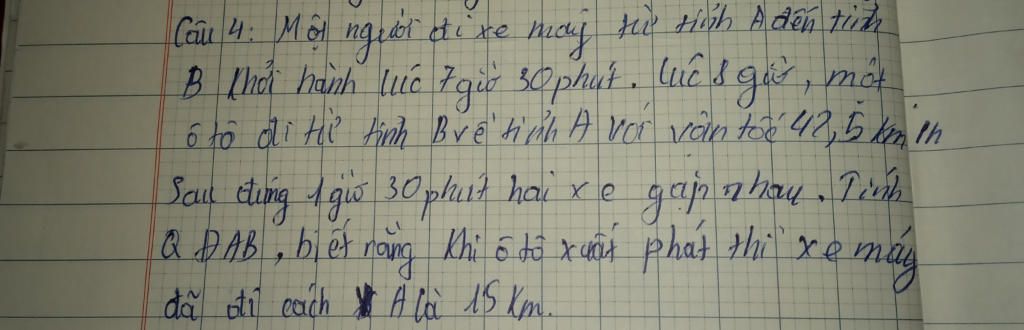 Câu 4: Một người đi xe máy từ tỉnh A đến tỉnh
B khởi hành lúc 7 giờ 30 phút. Lúc 8 giờ, một
ô tô đi từ tỉnh B về tỉnh A với vân tốc 42,5 km/h
Sau đúng 1 giờ 30 phút hai xe gặp nhau. Tính
QĐAB, biết rằng khi ô tô xuất phát thì xe máy
đã đi cách A là 15 km.